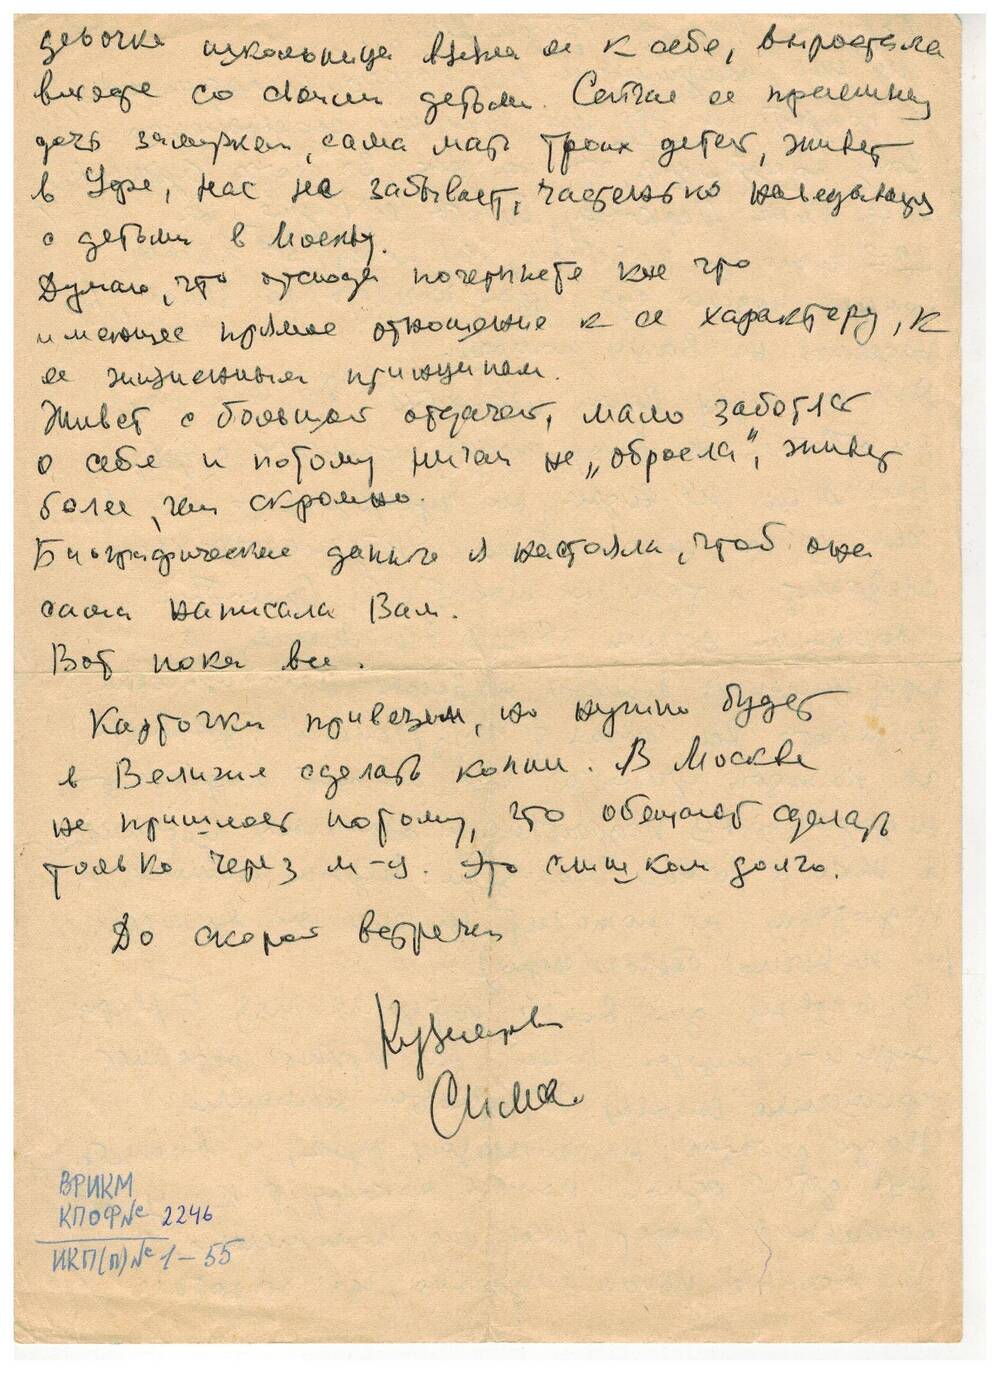 девочка школьница взяла ее к себе, выростила
вместе со своими детьми. Сейчас ее приемная
дочь замужем, сама мать троих детей, живет
в Уфе, нас не забывает, частенько наведываясь
с детьми в Москву.
Думаю, что отсюда почерпнете кое что
имеющее прямое отношение к ее характеру, к
ее жизненным принципам.
Живет с большой отдачей, мало заботясь
о себе и потому ничем не „обросла", живет
более, чем скромно.
Биографические данные я настояла, чтоб она
сама написала Вам.
Вот пока все.
Карточки привезем, но нужно будет
в Велиже сделать копии. В Москве
не пришлось потому, что обещают сделать
только через м-ц. Это слишком долго.
До скорой встречи
Кузнецова
Сима.
ВРИКМ
КПОФ№ 2246
ИКП(п)№ 1-55